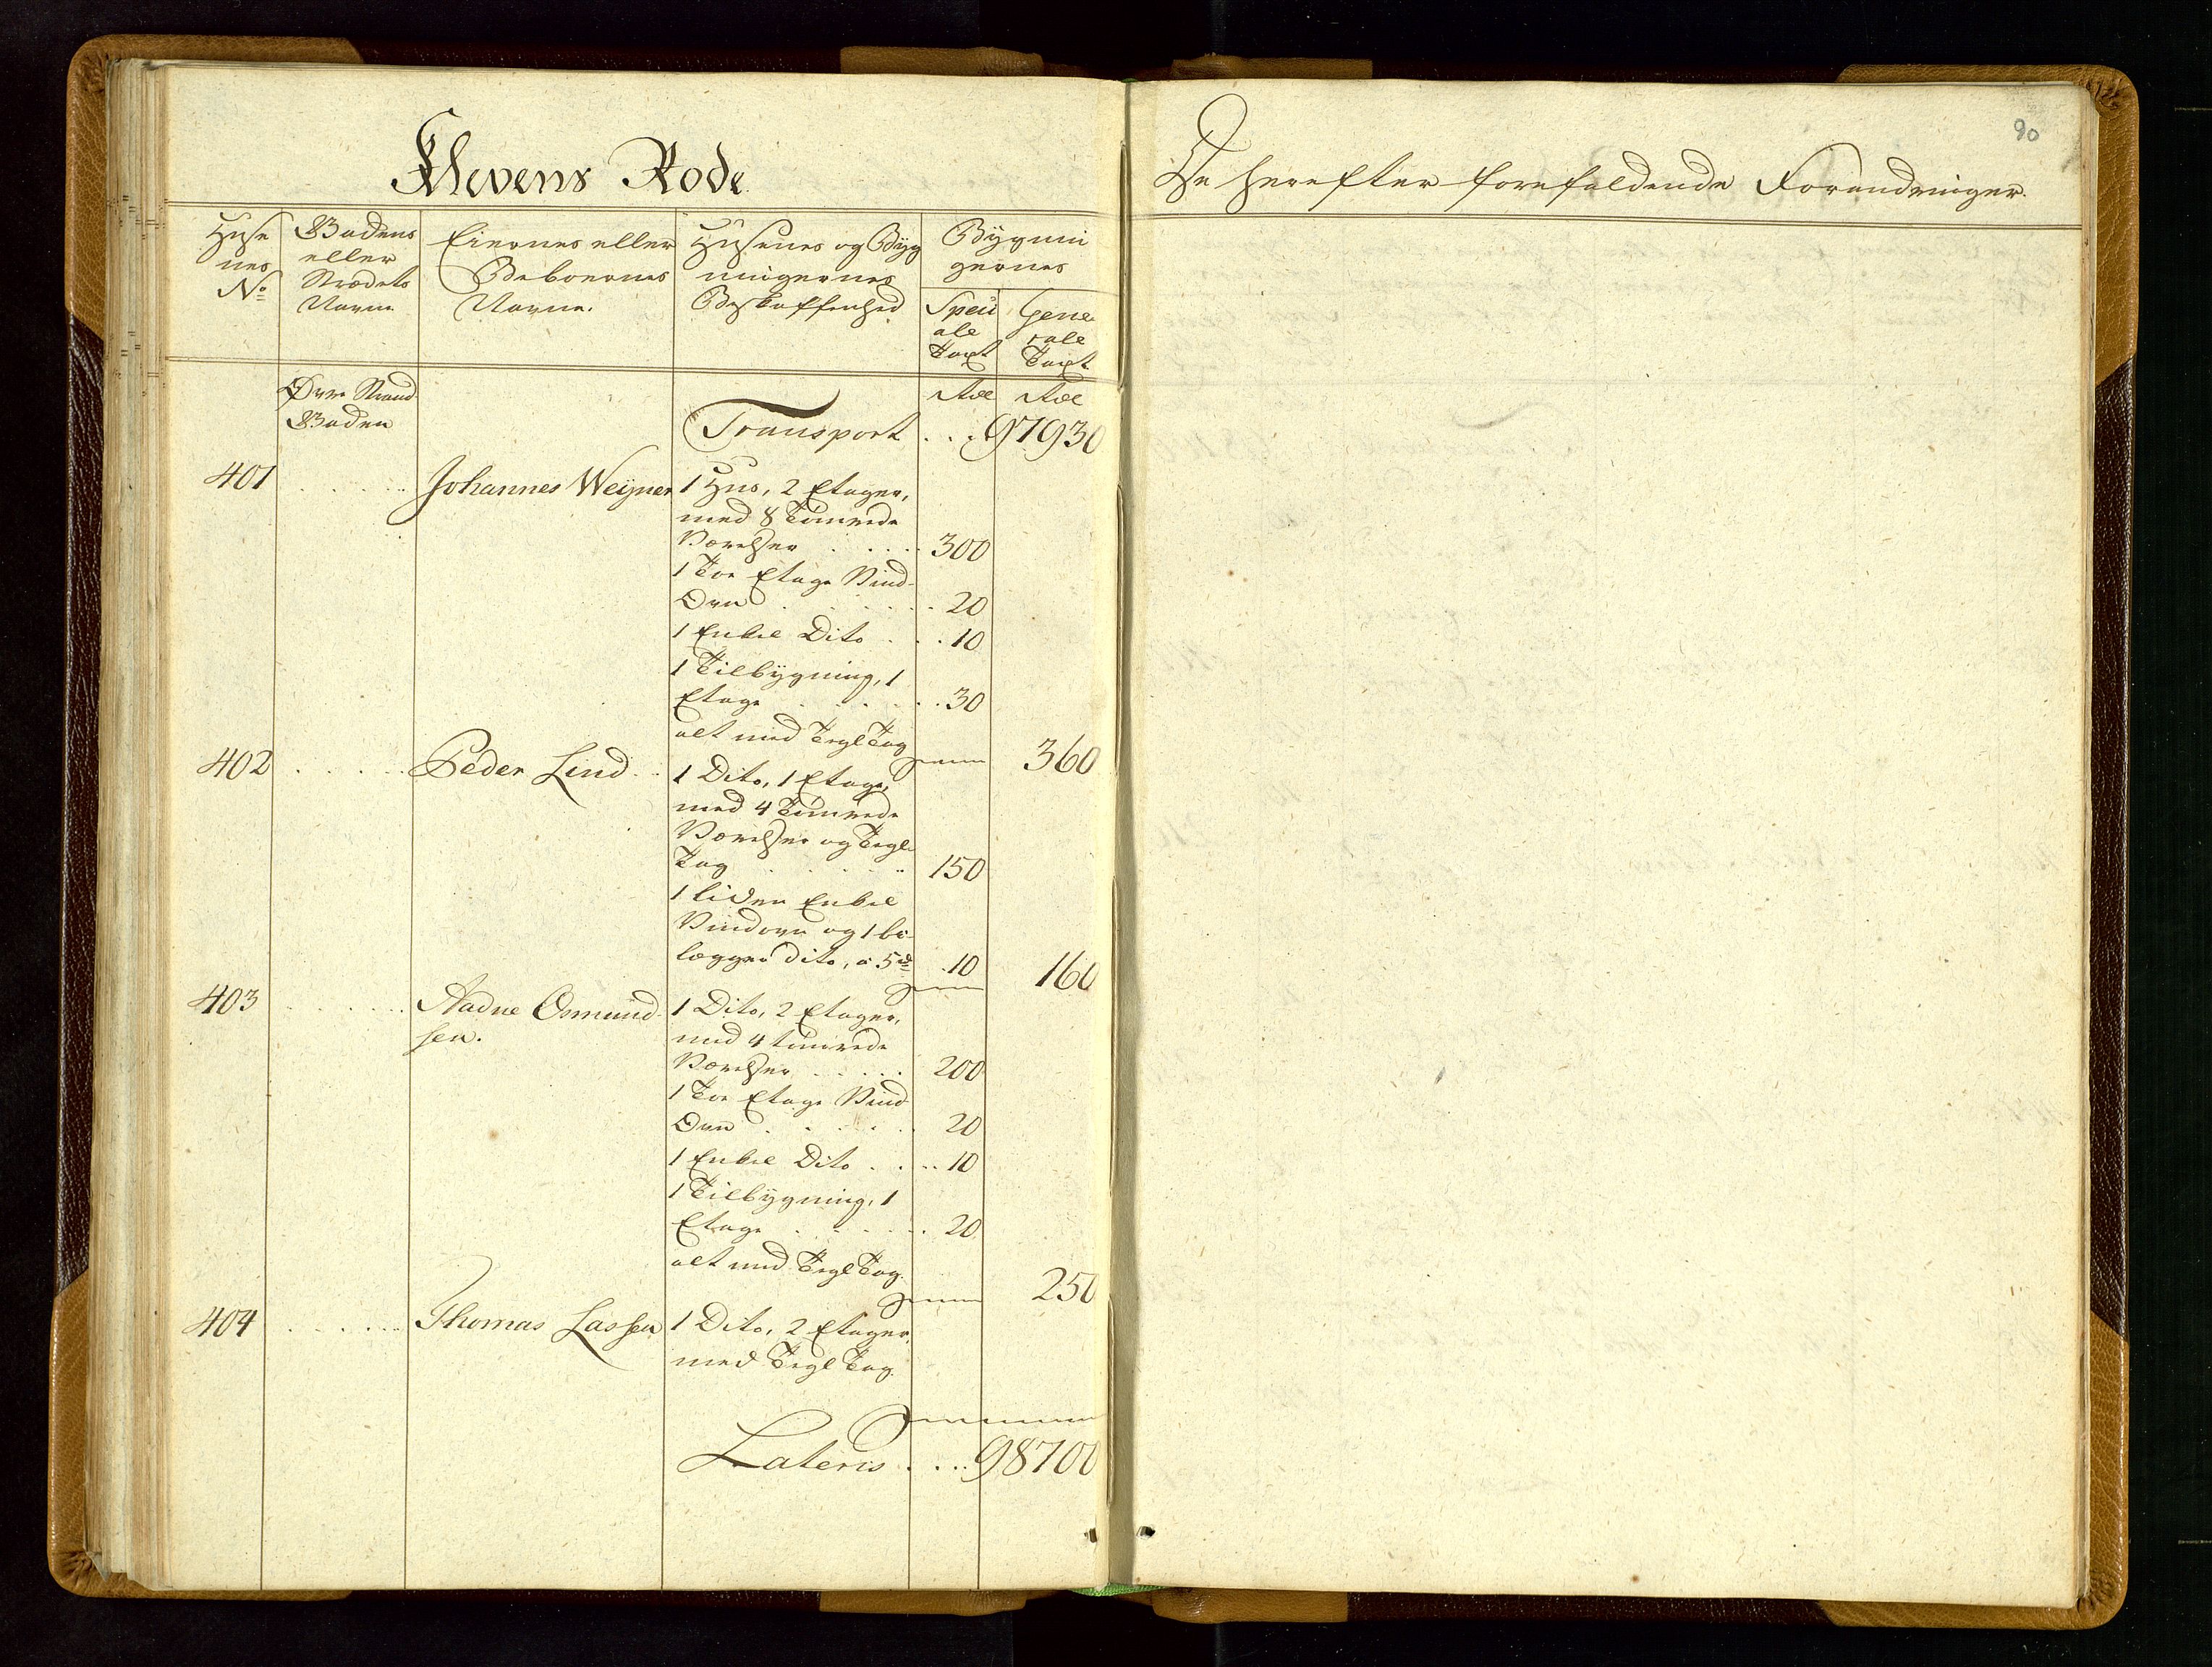 Klevens Rode
Huse
nes
No
Gadens
eller
Strædets
Navne
Eiernes eller
Beboernes
Navne.
Husenes og Byg
ningernes
Beskaffenhed
Bygni
gernes
Speci
ale
Taxt
Gene
rale
Taxt
Øvre Strand
Gaden
Rdl
Rdl
Transport . . . 97930
401 . . . . . Johannes Weyner 1 Huus, 2 Etager,
med 8 tømrede
Værelser . . . . 300
1 toe Etage Vind-
Ovn . . . . . . 20
1 Enkel Dito . . . 10
1 Tilbygning, 1
Etage . . . . . . 30
alt med Tegl Tag
360
402 . . . . . Peder Lind . . 1 Dito, 1 Etage,
med 4 tømrede
Værelser og Tegl
Tag . . . . . . 150
1 liden Enkel
Vindovn og 1 bi-
lægger dito, a 5 rd . 10
160
403 . . . . . . Aadne Osmund- 1 Dito, 2 Etager,
sen. med 4 tømrede
Værelser . . . . . 200
1 toe Etage Vind
Ovn . . . . . . 20
1 Enkel Dito . . . . 10
1 Tilbygning, 1
Etage . . . . . . 20
alt med Tegl Tag.
250
404 . . . . . . Thomas Lassen 1 Dito, 2 Etager,
med Tegl Tag.
Lateris . . . . 98700
90
De herefter forefaldende Forandringer.